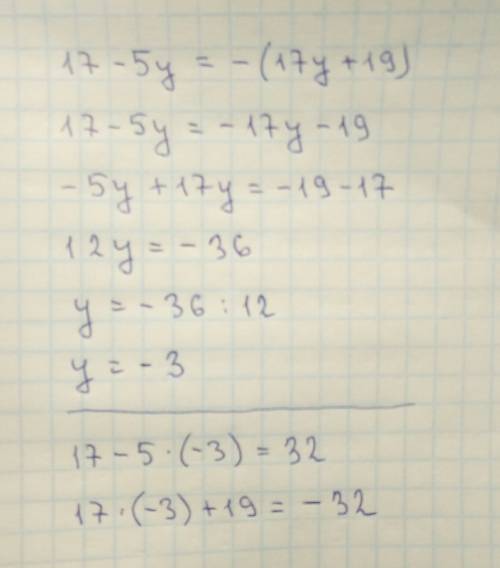 17 - 5y = - (17y + 19)
17 - 5y = - 17y - 19
- 5y + 17y = - 19 - 17
12y = - 36
y = - 36 : 12
y = - 3
17 - 5 · (-3) = 32
17 · (-3) + 19 = - 32